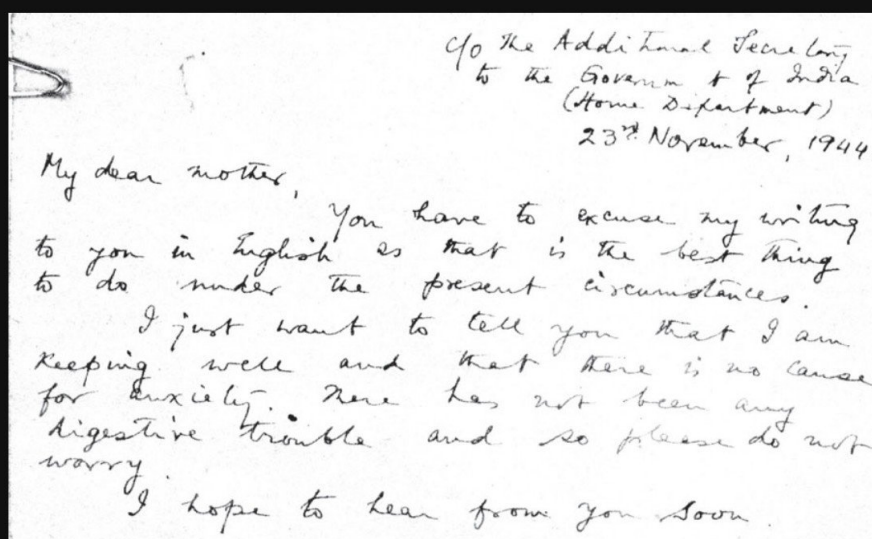 c/o The Additional Secretary
to the Government of India
(Home Department)
23rd November, 1944
My dear mother,
You have to excuse my writing
to you in English as that is the best thing
to do under the present circumstances.
I just want to tell you that I am
keeping well and that there is no cause
for anxiety. There has not been any
digestive trouble and so please do not
worry.
I hope to hear from you soon.